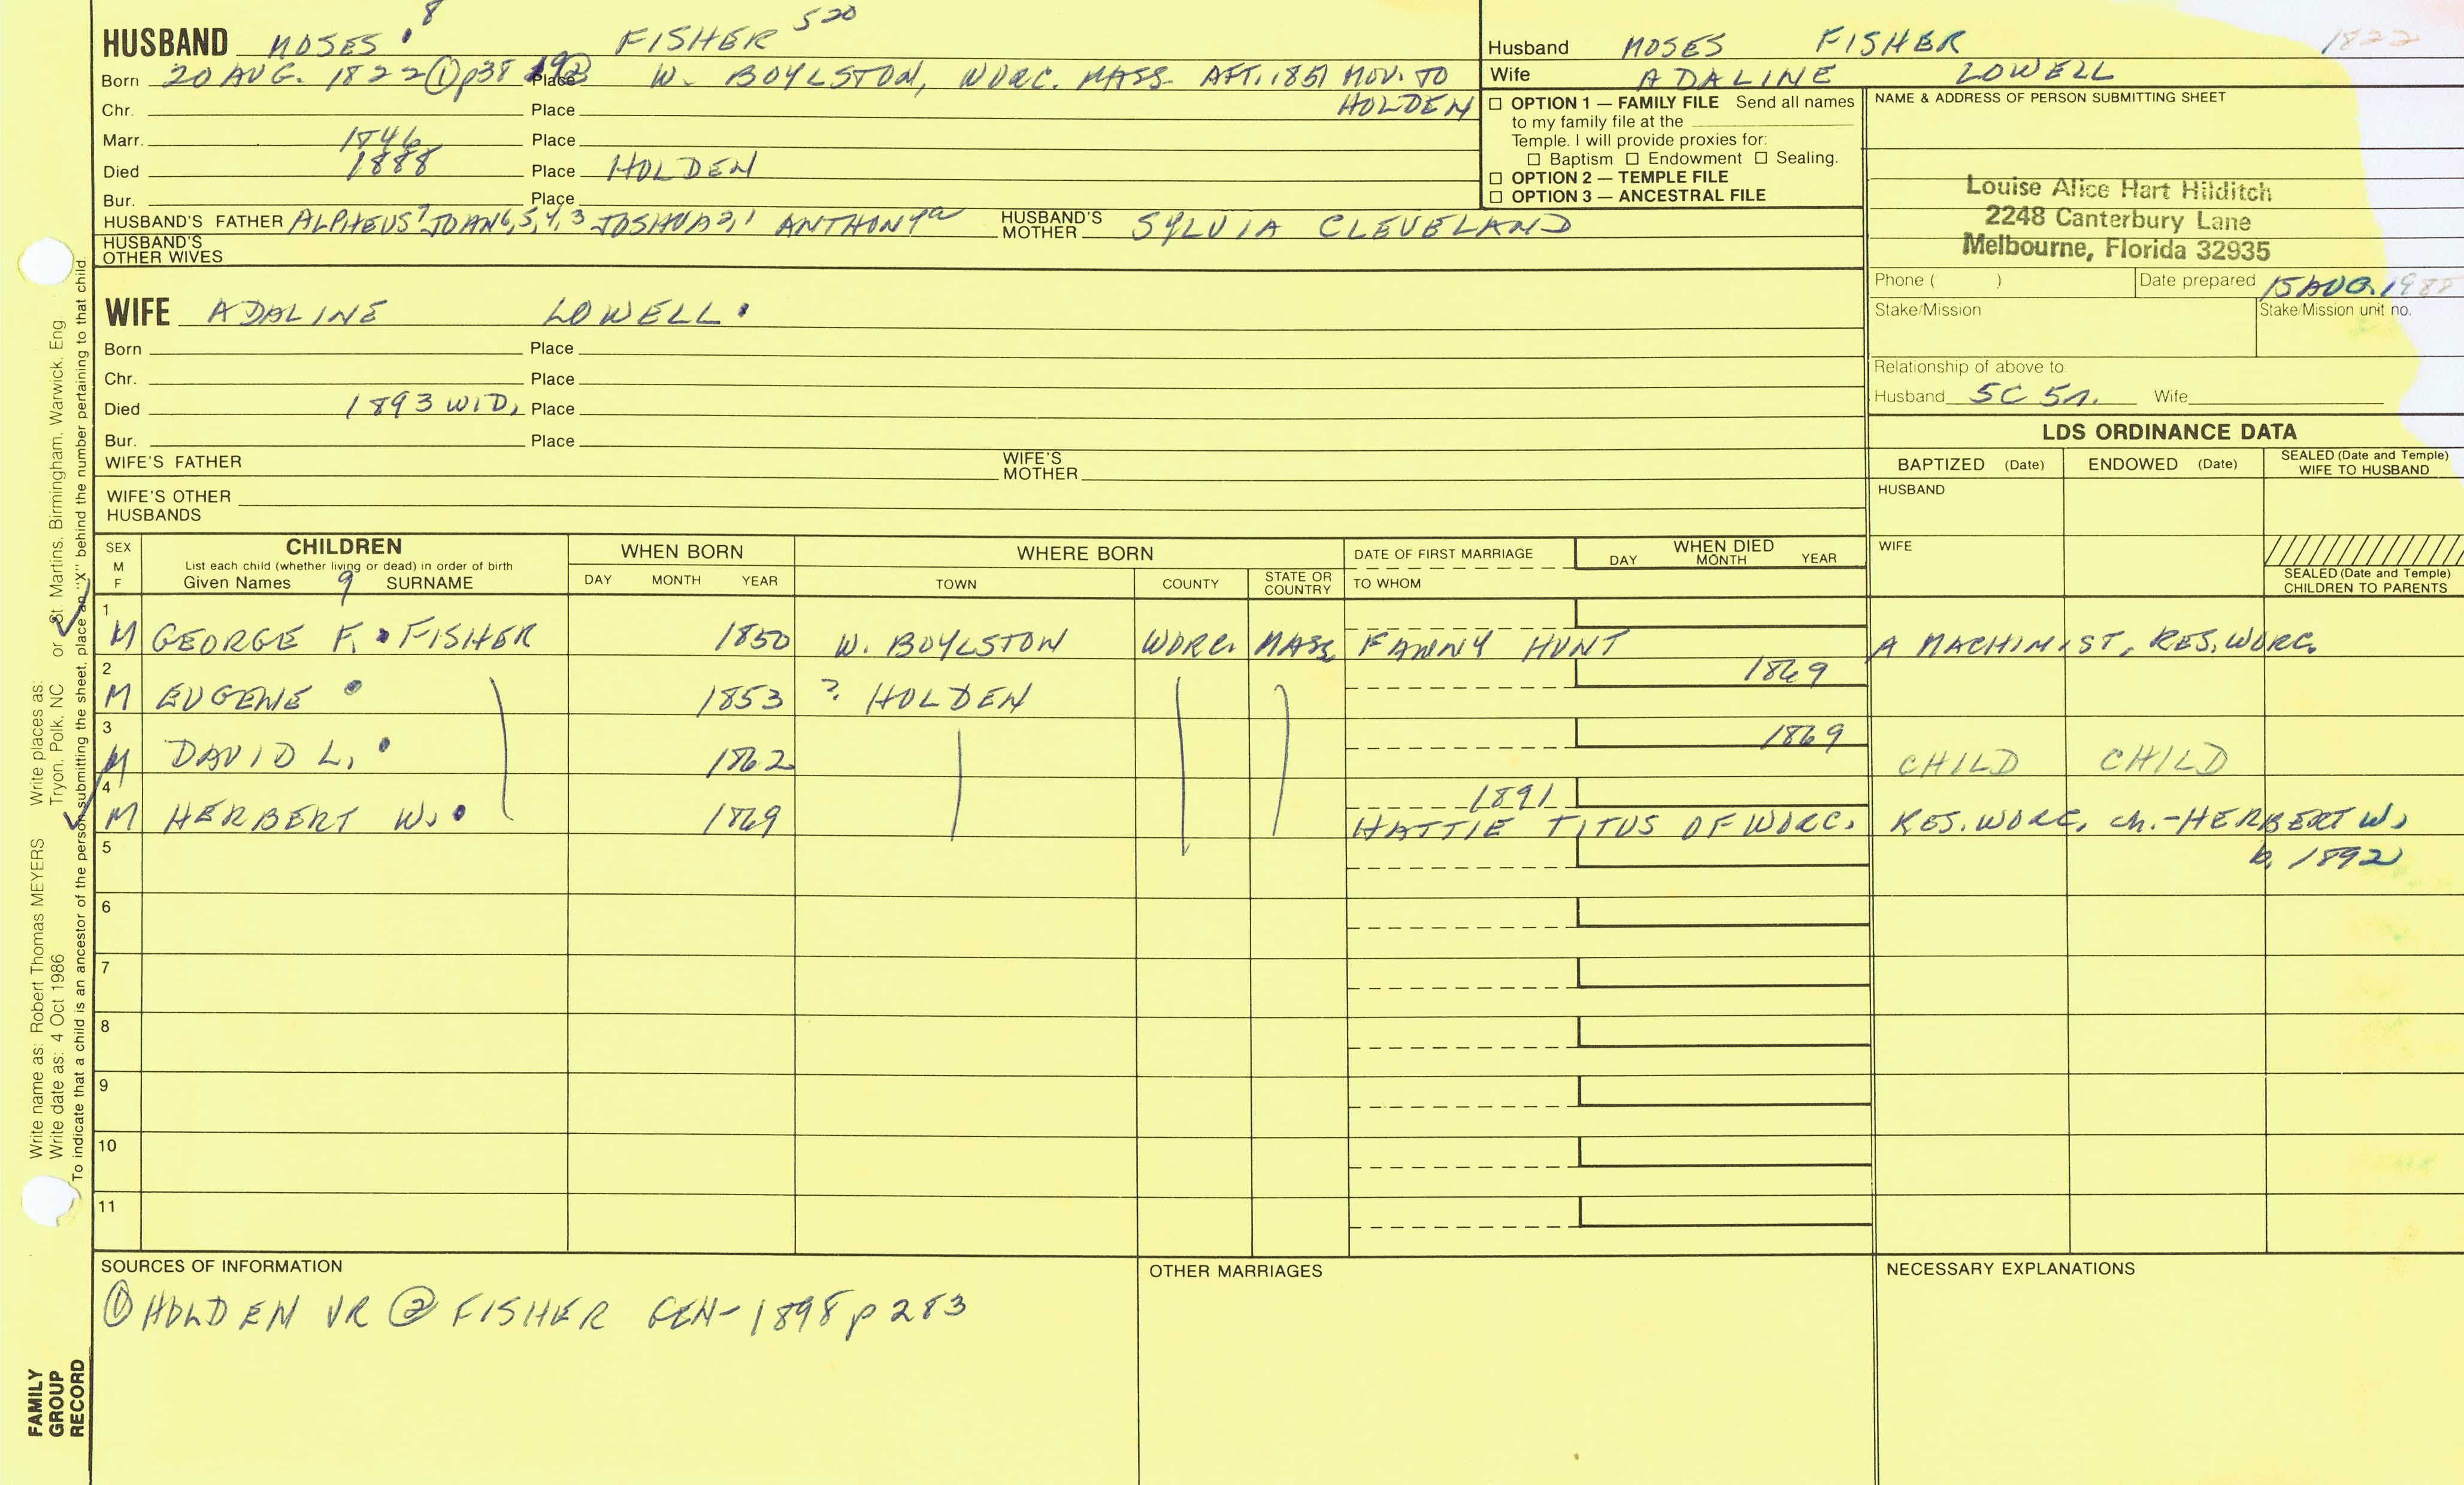 HUSBAND MOSES 8 FISHER 520
Born 20 AUG. 1822 ① p38 Place W. BOYLSTON, WORC. MASS. AFT. 1851 MOV. TO
HOLDEN
Chr. Place
Marr. 1846 Place
Died 1888 Place HOLDEN
Bur. Place
HUSBAND'S FATHER ALPHEUS7 JOHN6,5,4,3 JOSHUA2,1 ANTHONYa HUSBAND'S MOTHER SYLVIA CLEVELAND
HUSBAND'S OTHER WIVES
WIFE ADALINE LOWELL
Born Place
Chr. Place
Died 1893 WID, Place
Bur. Place
WIFE'S FATHER WIFE'S MOTHER
WIFE'S OTHER HUSBANDS
Husband MOSES FISHER 1822
Wife ADALINE LOWELL
☐ OPTION 1 — FAMILY FILE Send all names
to my family file at the
Temple. I will provide proxies for:
☐ Baptism ☐ Endowment ☐ Sealing.
☐ OPTION 2 — TEMPLE FILE
☐ OPTION 3 — ANCESTRAL FILE
NAME & ADDRESS OF PERSON SUBMITTING SHEET
Louise Alice Hart Hilditch
2248 Canterbury Lane
Melbourne, Florida 32935
Phone ( ) Date prepared 15 AUG. 1988
Stake/Mission Stake/Mission unit no.
Relationship of above to
Husband 5C 5r. Wife
LDS ORDINANCE DATA
BAPTIZED (Date) ENDOWED (Date) SEALED (Date and Temple) WIFE TO HUSBAND
HUSBAND
WIFE
SEALED (Date and Temple) CHILDREN TO PARENTS
SEX M F CHILDREN WHEN BORN WHERE BORN DATE OF FIRST MARRIAGE WHEN DIED
List each child (whether living or dead) in order of birth
Given Names 9 SURNAME DAY MONTH YEAR TOWN COUNTY STATE OR COUNTRY TO WHOM DAY MONTH YEAR
1 M GEORGE F. FISHER 1850 W. BOYLSTON WORC. MASS FANNY HUNT A MACHINIST, RES. WORC.
2 M EUGENE 1853 ? HOLDEN 1869
3 M DAVID L. 1862 1869 CHILD CHILD
4 M HERBERT W. 1869 1891
HATTIE TITUS OF WORC. RES. WORC, ch.-HERBERT W.
b. 1892
5
6
7
8
9
10
11
SOURCES OF INFORMATION
① HOLDEN VR ② FISHER GEN-1898 p 283
OTHER MARRIAGES
NECESSARY EXPLANATIONS
Write name as: Robert Thomas MEYERS Write places as: Tryon, Polk, NC or St. Martins, Birmingham, Warwick, Eng.
Write date as: 4 Oct 1986
To indicate that a child is an ancestor of the person submitting the sheet, place an "X" behind the number pertaining to that child.
FAMILY
GROUP
RECORD